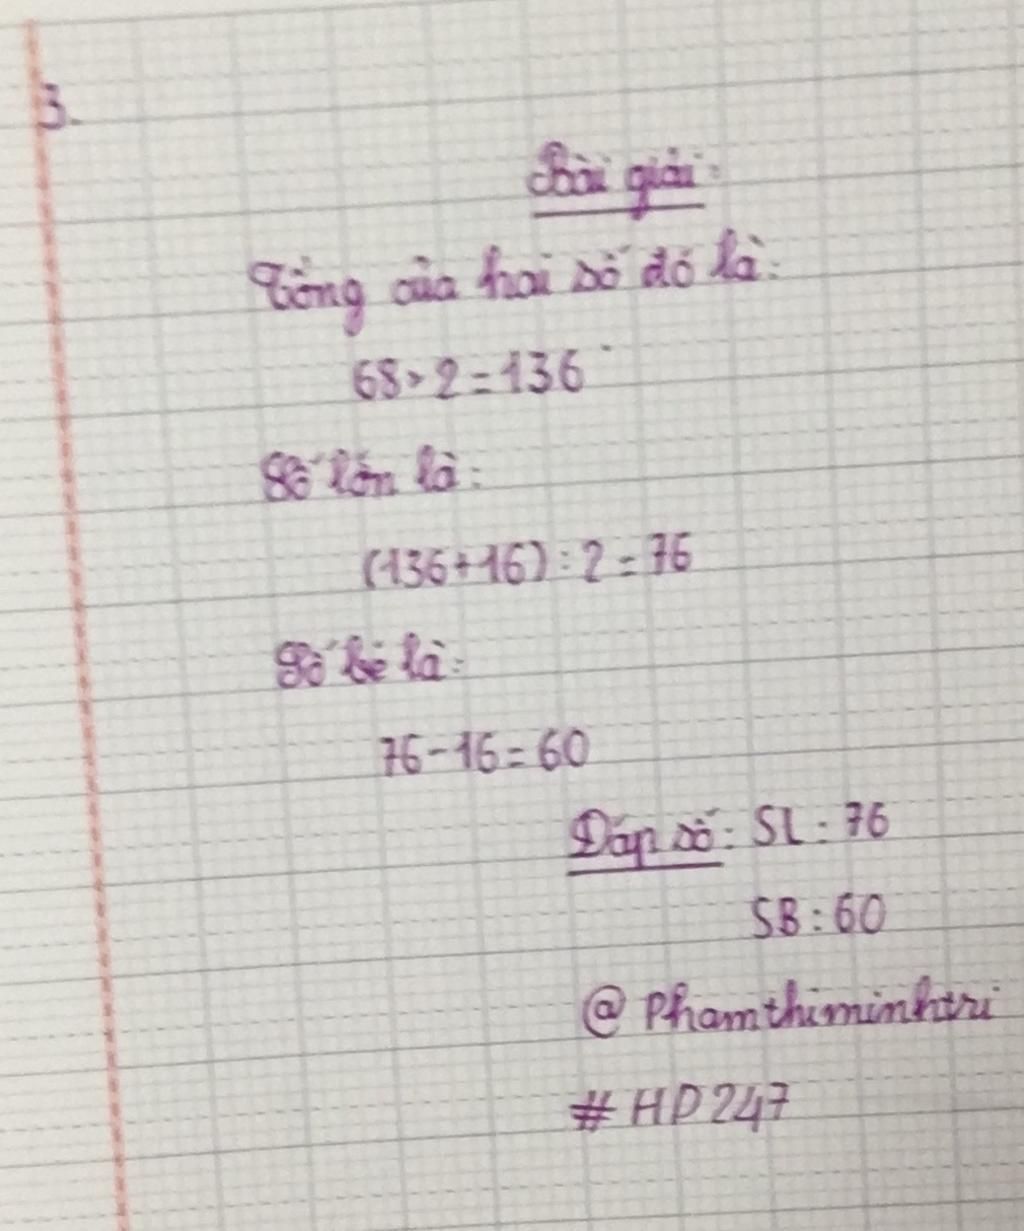 3.
Bài giải:
Tổng của hai số đó là:
68 × 2 = 136
Số lớn là:
(136 + 16) : 2 = 76
Số bé là:
76 - 16 = 60
Đáp số: SL : 76
SB : 60
@ Phamthiminhtri
# HD247